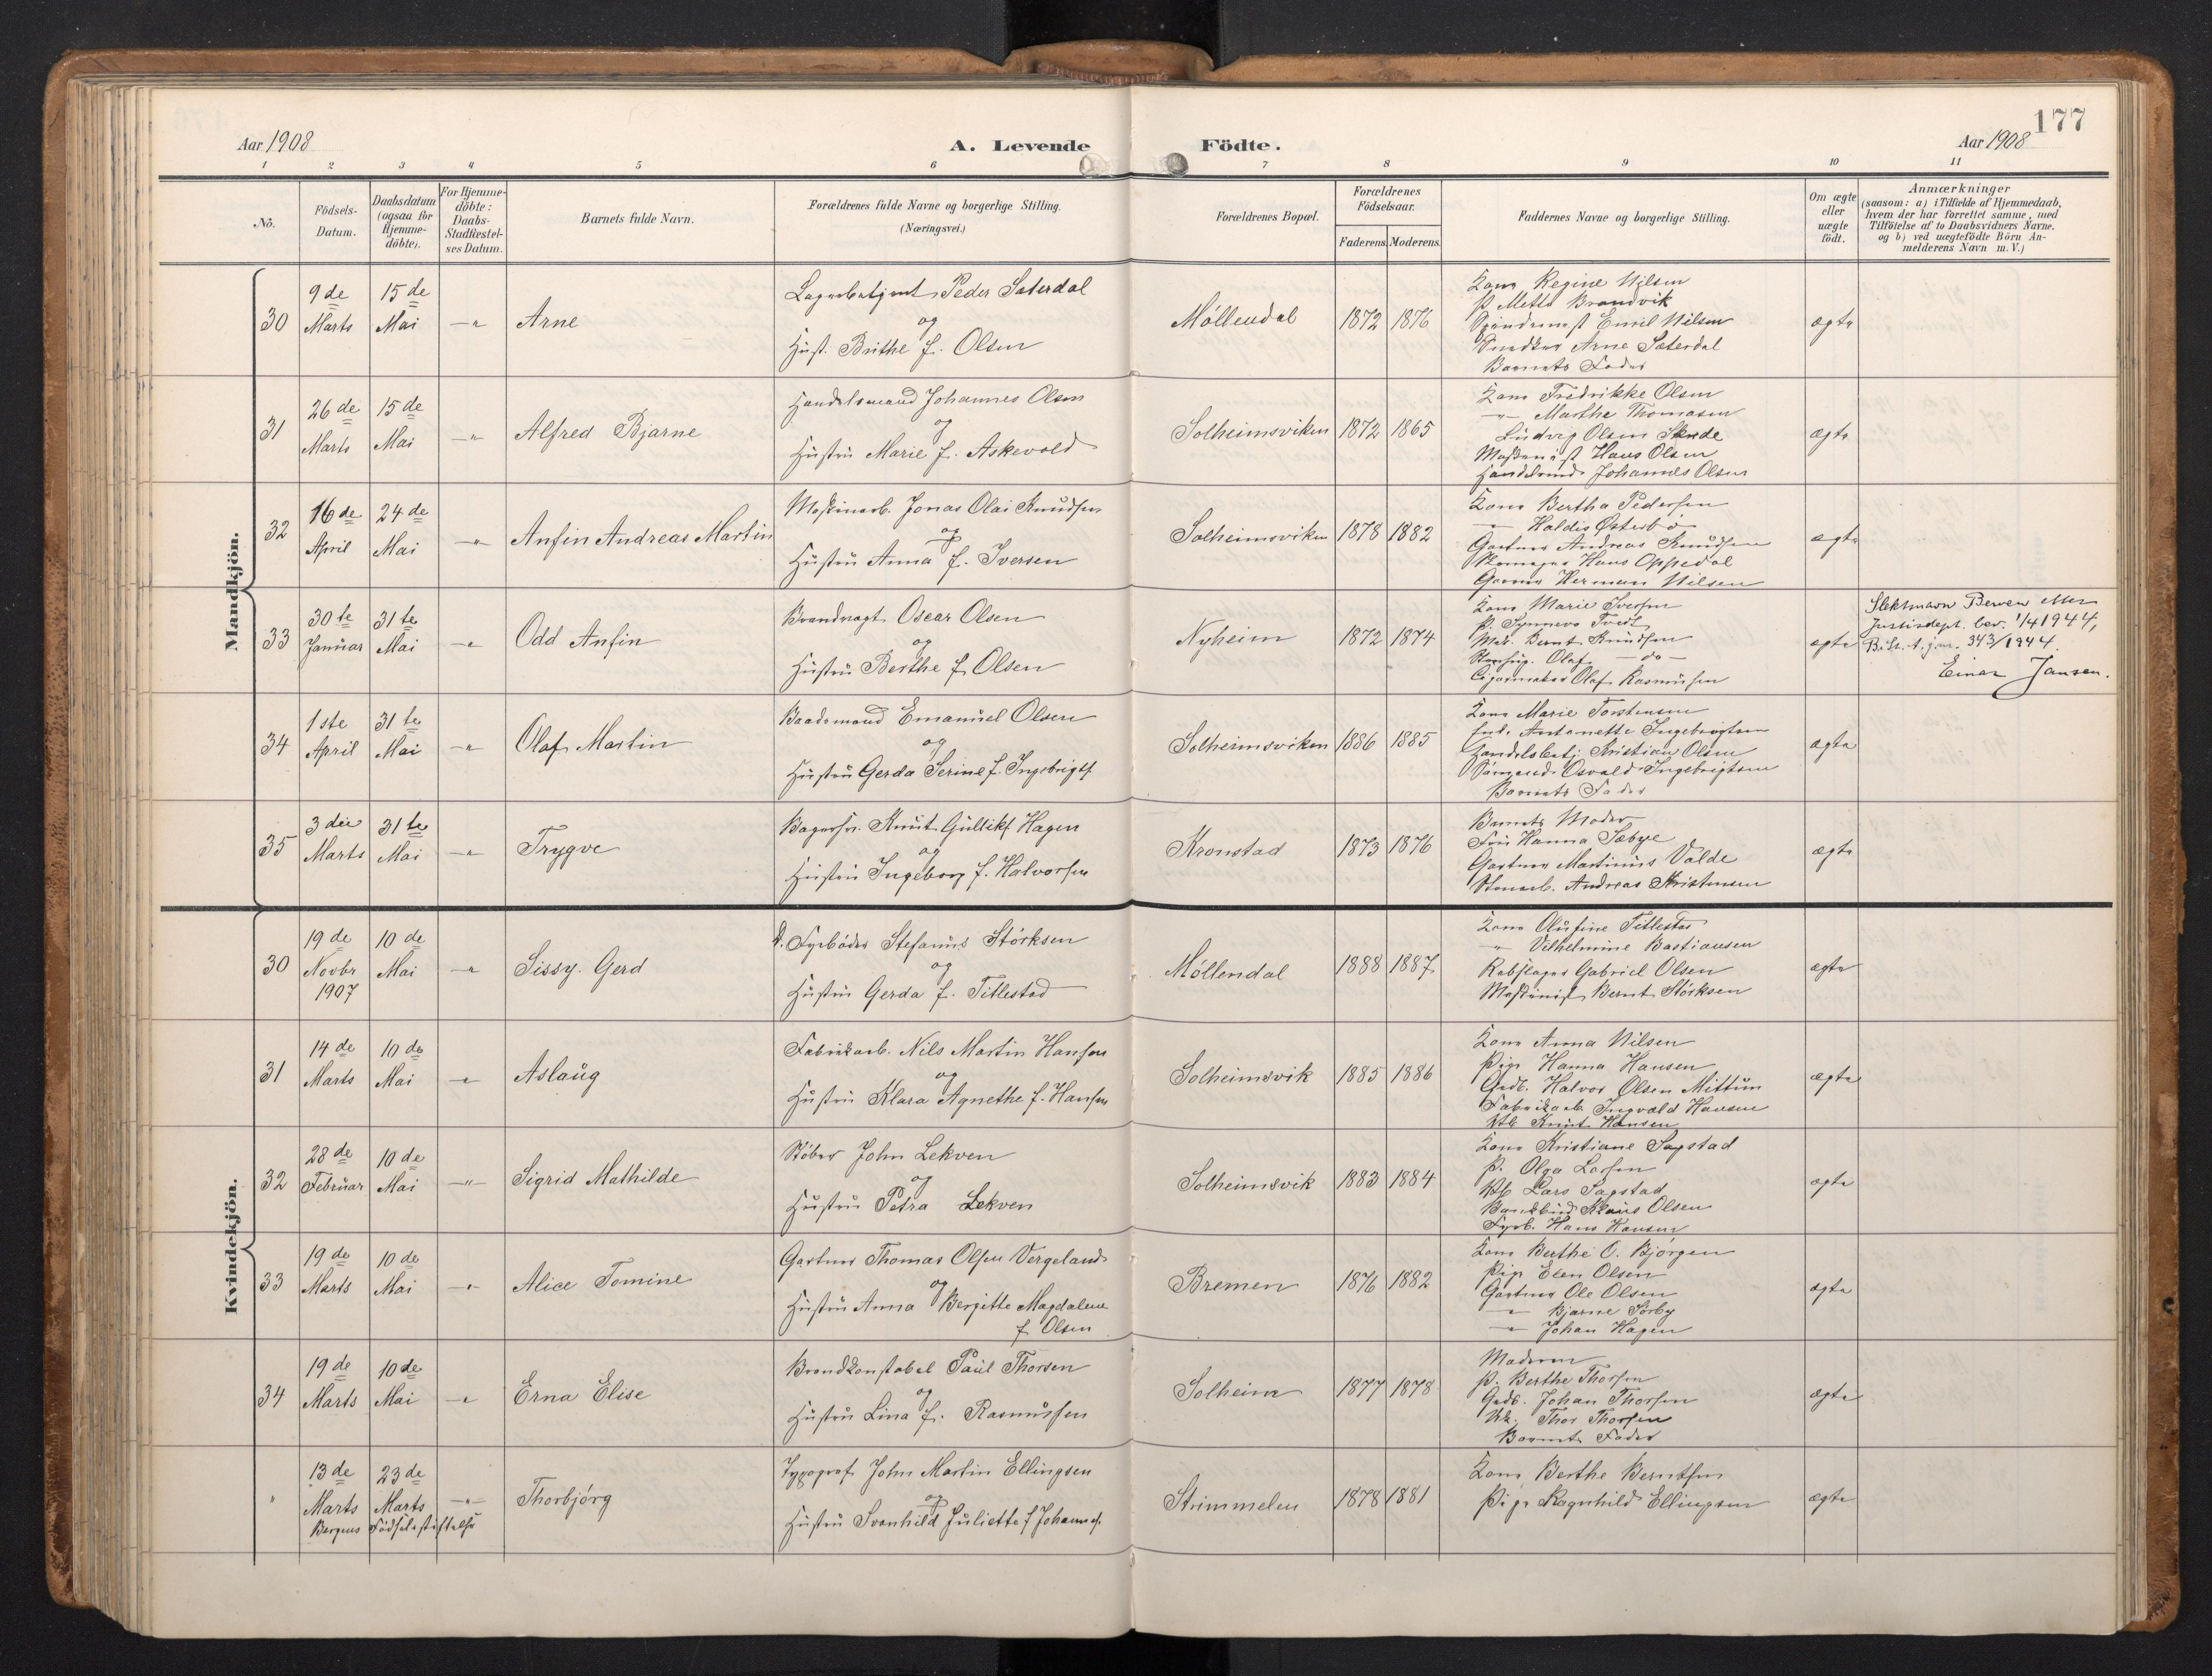 177
Aar 1908
A. Levende Födte.
Aar 1908
1 2 3 4 5 6 7 8 9 10 11
No.
Födsels-
Datum.
Daabsdatum
(ogsaa for
Hjemme-
döbte).
For Hjemme-
döbte:
Daabs-
Stadfestel-
ses Datum.
Barnets fulde Navn.
Forældrenes fulde Navne og borgerlige Stilling.
(Næringsvei.)
Forældrenes Bopæl.
Forældrenes
Födselsaar.
Faderens. Moderens.
Faddernes Navne og borgerlige Stilling.
Om ægte
eller
uægte
födt.
Anmærkninger
(saasom: a) i Tilfælde af Hjemmedaab,
hvem der har forrettet samme, med
Tilföielse af to Daabsvidners Navne.
og b) ved uægtefödte Börn An-
melderens Navn m. V.)
Mandkjön.
30
9de
Marts
15de
Mai
Arne
Lagerbetjent Peder Saterdal
og
Hust. Brithe f. Olsen
Möllendal
1872 1876
Kone Regine Nilsen
P. Mette Brandvik
Emil Nilsen
Snedker Arne Sæterdal
Barnets Fader
ægte
31
26de
Marts
15de
Mai
Alfred Bjarne
Handelsmand Johannes Olsen
og
Hustru Marie f. Askevold
Solheimsviken
1872 1865
Kone Fredrikke Olsen
Marthe Thomasen
Ludvig Olsen Skude
Maskinist Hans Olsen
Handelsmd. Johannes Olsen
ægte
32
16de
April
24de
Mai
Anfin Andreas Martin
Maskinarb. Jonas Olai Knudsen
og
Hustru Anna f. Iversen
Solheimsviken
1878 1882
Kone Bertha Pedersen
Haldis Österbö
Gartner Andreas Knudsen
Skomager Hans Oppedal
Herman Nilsen
ægte
33
30te
Januar
31te
Mai
Odd Anfin
Brandvagt Oscar Olsen
og
Hustru Berthe f. Olsen
Nyheim
1872 1874
Kone Marie Iversen
P. Synneve Tvedt
Bernt Knudsen
Olaf - do -
Cigarmaker Olaf Rasmussen
ægte
Slektsnavn Berven etter
Justisdept. bev. 1/4 1944,
343/1944.
Einar Jansen.
34
1ste
April
31te
Mai
Olaf Martin
Baadsmand Emanuel Olsen
og
Hustru Gerda Serine f. Ingebrigts.
Solheimsviken
1886 1885
Kone Marie Torstensen
Antonette Ingebrigtsen
Handelsbetj. Kristian Olsen
Sömand Osvald Ingebrigtsen
Barnets Fader
ægte
35
3die
Marts
31te
Mai
Trygve
Bagersv. Knut Gulliks. Hagen
og
Hustru Ingeborg f. Halvorsen
Kronstad
1873 1876
Barnets Moder
Fru Hanna Sæbye
Gartner Martinius Valde
Stenarb. Andreas Kristensen
ægte
Kvindekjön.
30
19de
Novbr
1907
10de
Mai
Sissy Gerd
Fyrböder Stefanus Störksen
og
Hustru Gerda f. Titlestad
Möllendal
1888 1887
Kone Olufine Titlestad
" Vilhelmine Bastiansen
Rebslager Gabriel Olsen
Maskinist Bernt Störksen
ægte
31
14de
Marts
10de
Mai
Aslaug
Fabrikarb. Nils Martin Hansen
og
Hustru Klara Agnethe f. Hansen
Solheimsvik
1885 1886
Kone Anna Nilsen
Pige Hanna Hansen
Gdb. Halvor Olsen Mittun
Fabrikarb. Ingvald Hansen
Knut Hansen
ægte
32
28de
Februar
10de
Mai
Sigrid Mathilde
Stöber John Lekven
og
Hustru Petra Lekven
Solheimsvik
1883 1884
Kone Kristiane Sagstad
P. Olga Larsen
Lars Sagstad
Klaus Olsen
Fyrb. Hans Hansen
ægte
33
19de
Marts
10de
Mai
Alice Tomine
Gartner Thomas Olsen Vergeland
og
Hustru Anna Bergitte Magdalene
f. Olsen
Bremen
1876 1882
Kone Berthe O. Bjørgen
Pige Elen Olsen
Gartner Ole Olsen
Bjarne Sörby
Johan Hagen
ægte
34
19de
Marts
10de
Mai
Erna Elise
Brandkonstabel Paul Thorsen
og
Hustru Lina f. Rasmussen
Solheim
1877 1878
Moderen
P. Berthe Thorsen
Gdb. Johan Thorsen
Thor Thorsen
Barnets Fader
ægte
"
13de
Marts
23de
Marts
Bergens Födselsstiftelse
Thorbjörg
Typograf John Martin Ellingsen
og
Hustru Svanhild Juliette f. Johannes.
Strimmelen
1878 1881
Kone Berthe Berntsen
Pige Ragnhild Ellingsen
ægte